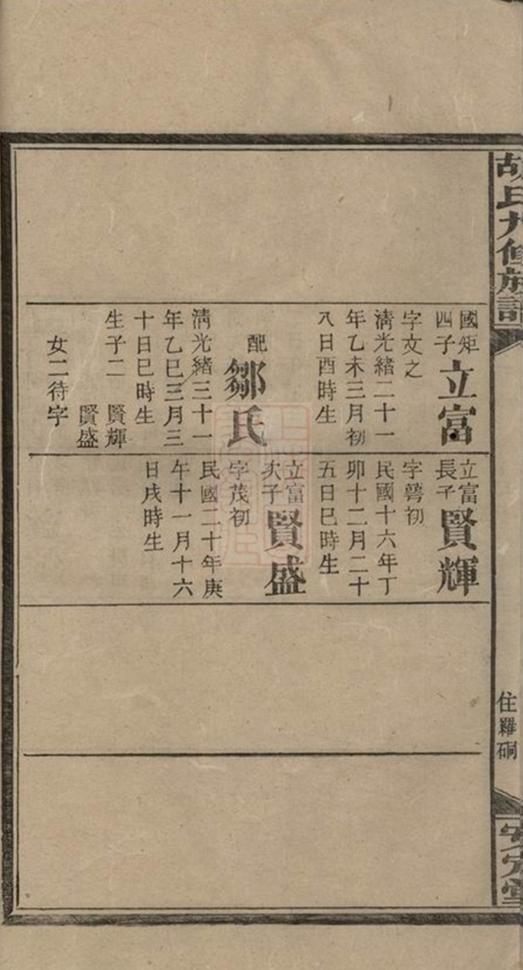 胡氏九修族譜
住羅硐
安定堂
國矩
四子
立富
字文之
清光緒二十一
年乙未三月初
八日酉時生
配
鄒氏
清光緒三十一
年乙巳三月三
十日巳時生
生子二 賢輝
賢盛
女二待字
立富
長子
賢輝
字萼初
民國十六年丁
卯十二月二十
五日巳時生
立富
次子
賢盛
字茂初
民國二十年庚
午十一月十六
日戌時生